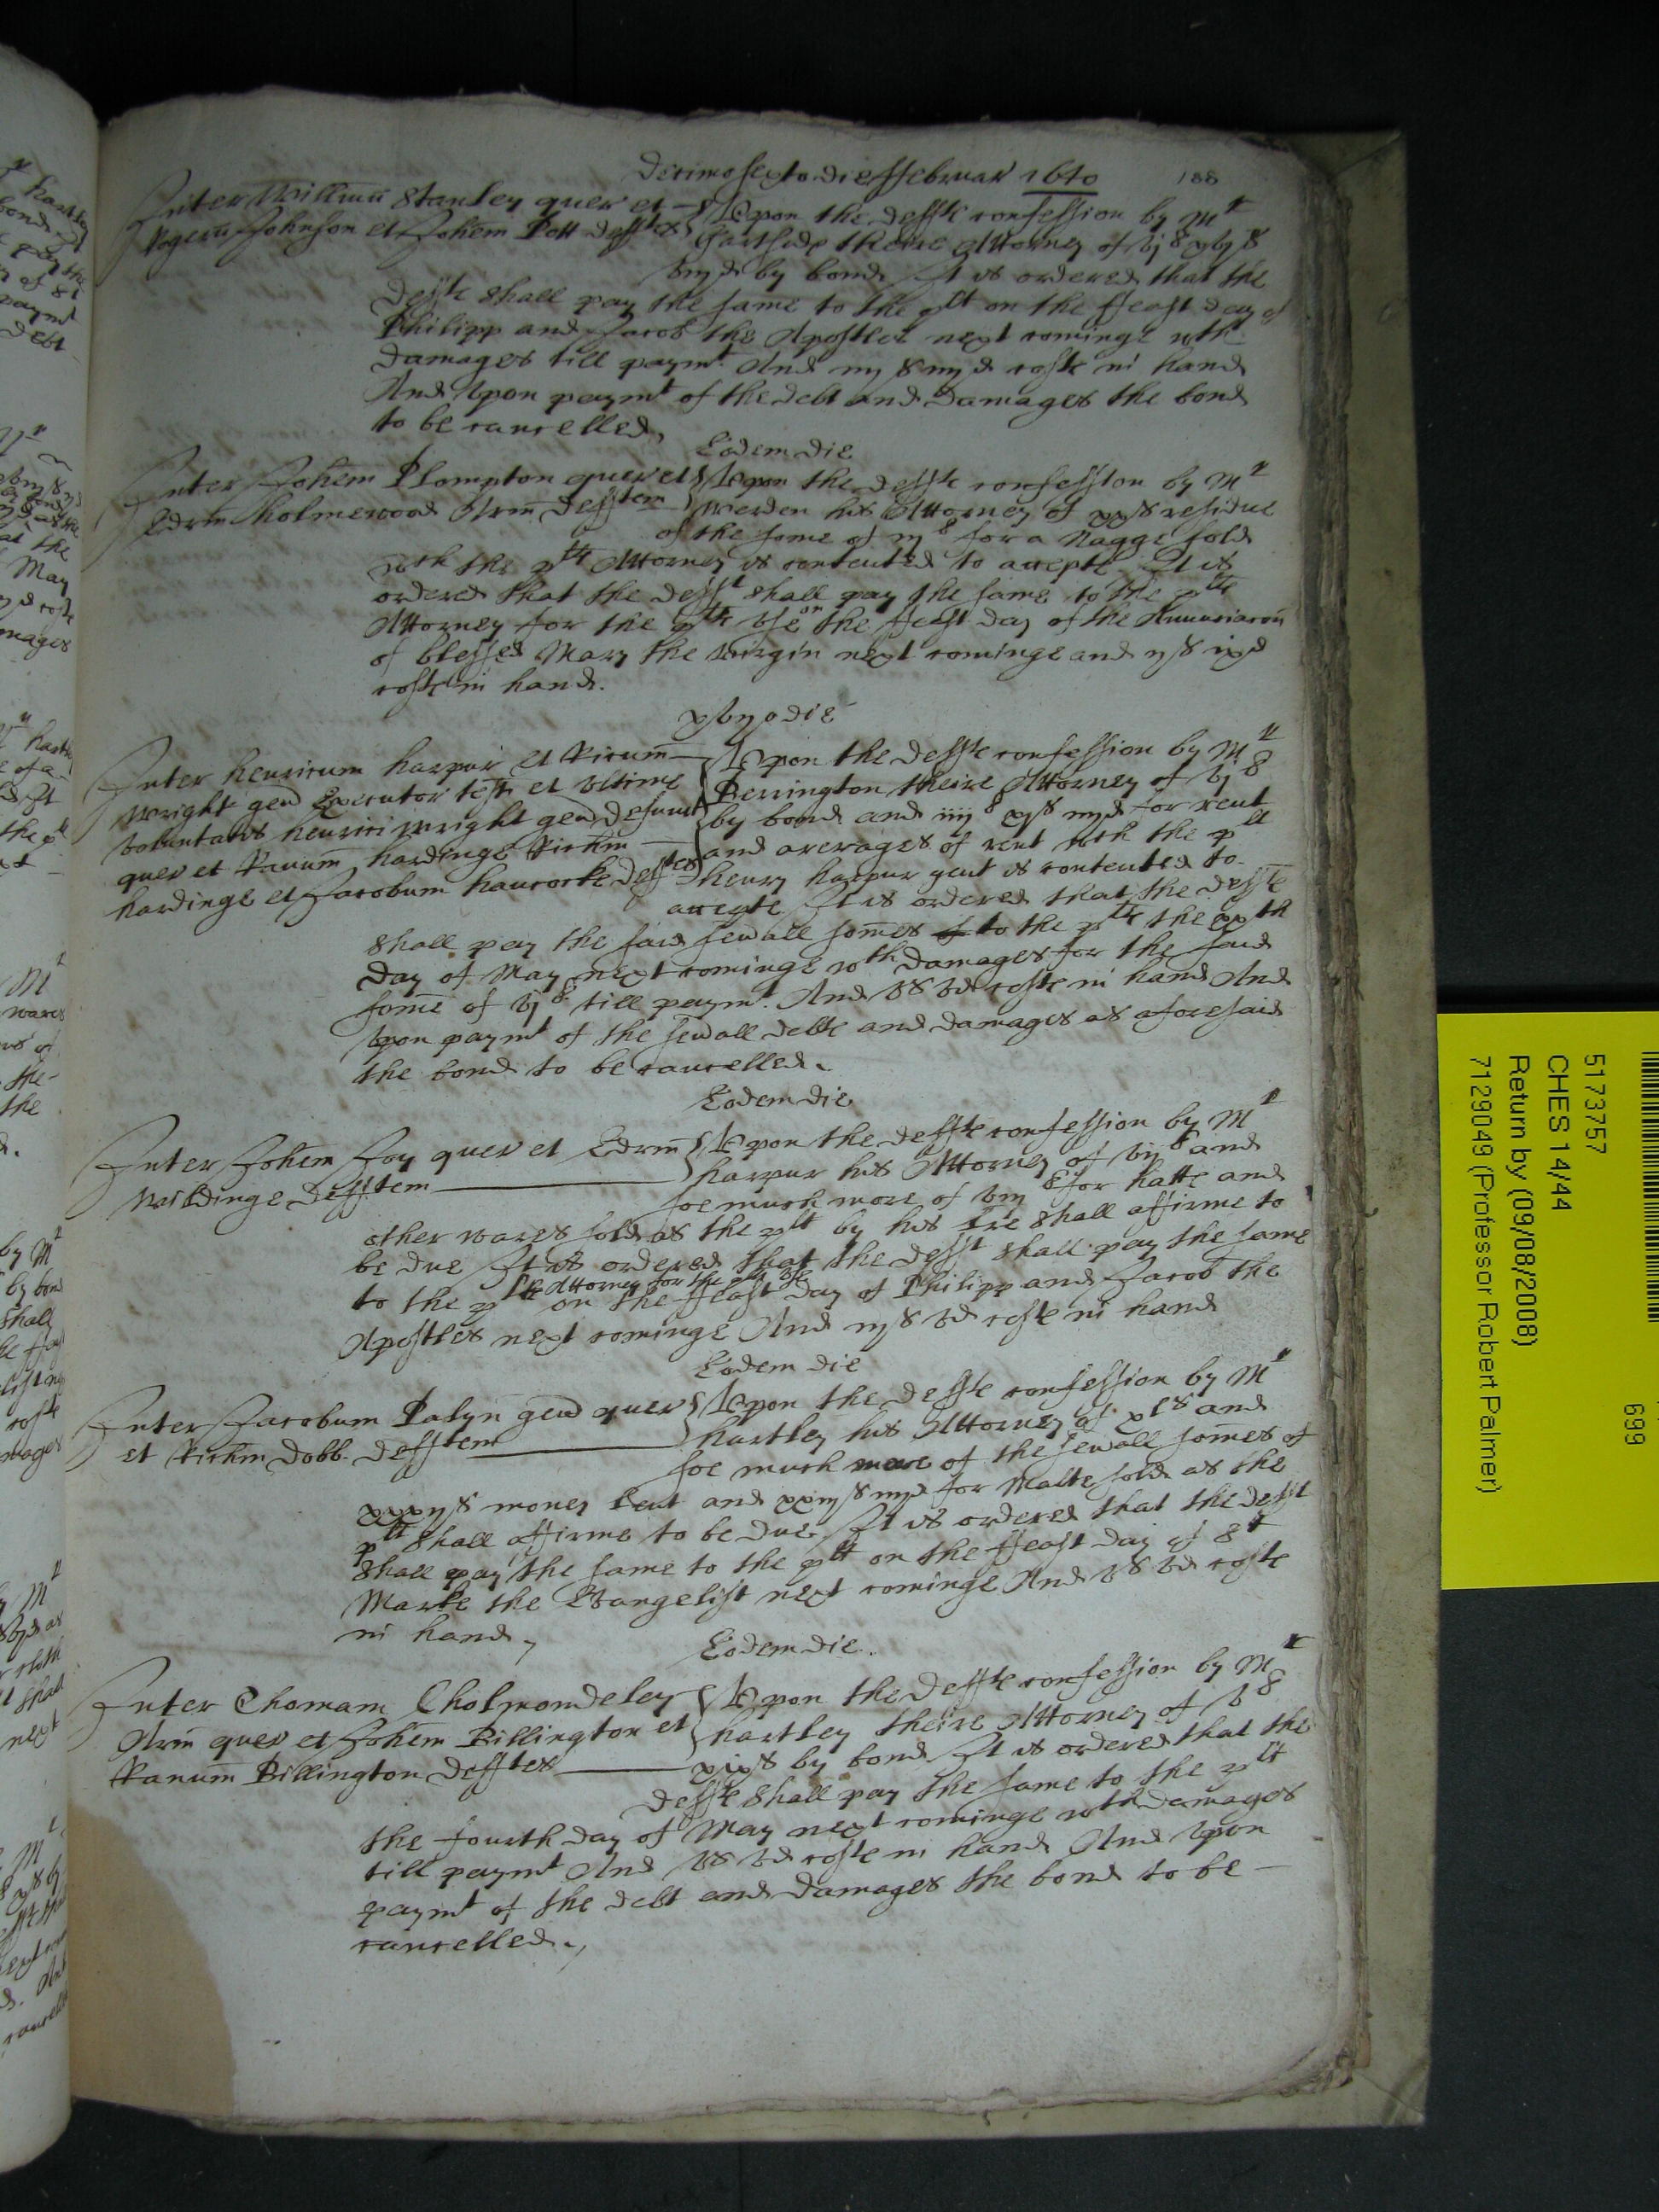 Decimosexto die Februar 1640
188
Inter Willmu Stanley quer et
Rogeru Johnson et Johem Pott defftes
Upon the deffts confession by Mr
Gartside theire Attorney of vj li xvj s
viij d by bond It is ordered that the
deffts shall pay the same to the plt on the ffeast day of
Philipp and Jacob the Apostles next cominge wth
damages till paymt And iij s iiij d costs in hand
And Upon paymt of the debt and damages the bond
to be cancelled,
Eodem die
Inter Johem Plompton quer et
Edrm holmewood Arm defftem
Upon the deffts confession by Mr
Werden his Attorney of xx s residue
of the some of iij li for a Nagge sold
wch the plts Attorney is contented to accepte It is
ordered that the defft shall pay the same to the plts
Attorney for the plts Use on the ffeast day of the Annunciacon
of blessed Mary the Virgin next cominge and ij s ix d
costs in hand.
xvijo die
Inter henricum harpur et Ricum
Wright gen Executor testi et Ultime
Voluntatis henrici Wright gen defunct
quer et Ranum hardinge Richm
hardinge et Jacobum hancocke defftes
Upon the deffts confession by Mr
Berrington theire Attorney of vj li
by bond and iiij li xj s iiij d for rent
and arerages of rent wch the plt
henry harpur gent is contented to
accepte It is ordered that the deffts
shall pay the said seuall somes of to the plts the xxth
day of May next cominge wth damages for the said
some of vj li till paymt. And v s v d costs in hand And
Upon paymt of the seuall debts and damages as aforesaid
the bond to be cancelled.
Eodem die
Inter Johem Joy quer et Edrm
Wildinge defftem
Upon the deffts confession by Mr
harpur his Attorney of vij li and
soe much more of viij li for hatts and
other wares sold as the plt by his lre shall affirme to
be due It is ordered that the defft shall pay the same
to the plts Attorney for the plts Use on the ffeast day of Philipp and Jacob the
Apostles next cominge And iij s v d costs in hand
Eodem die
Inter Jacobum Palyn gen quer
et Richm Dobb defftem
Upon the deffts confession by Mr
hartley his Attorney of xl s and
soe much more of the seuall somes of
xxxij s money lent and xxiij s iiij d for Malte sold as the
plt shall affirme to be due It is ordered that the defft
shall pay the same to the plt on the ffeast day of St
Marke the Evangelist next cominge And v s v d costs
in hand,
Eodem die.
Inter Thomam Cholmondeley
Arm quer et Johem Billington et
Ranum Billington defftes
Upon the deffts confession by Mr
hartley theire Attorney of v li
xix s by bond It is ordered that the
deffts shall pay the same to the plt
the fourth day of May next cominge wth damages
till paymt And v s v d costs in hand And Upon
paymt of the debt and damages the bond to be
cancelled.,
5173757
699
CHES 14/44
Return by (09/08/2008)
7129049 (Professor Robert Palmer)